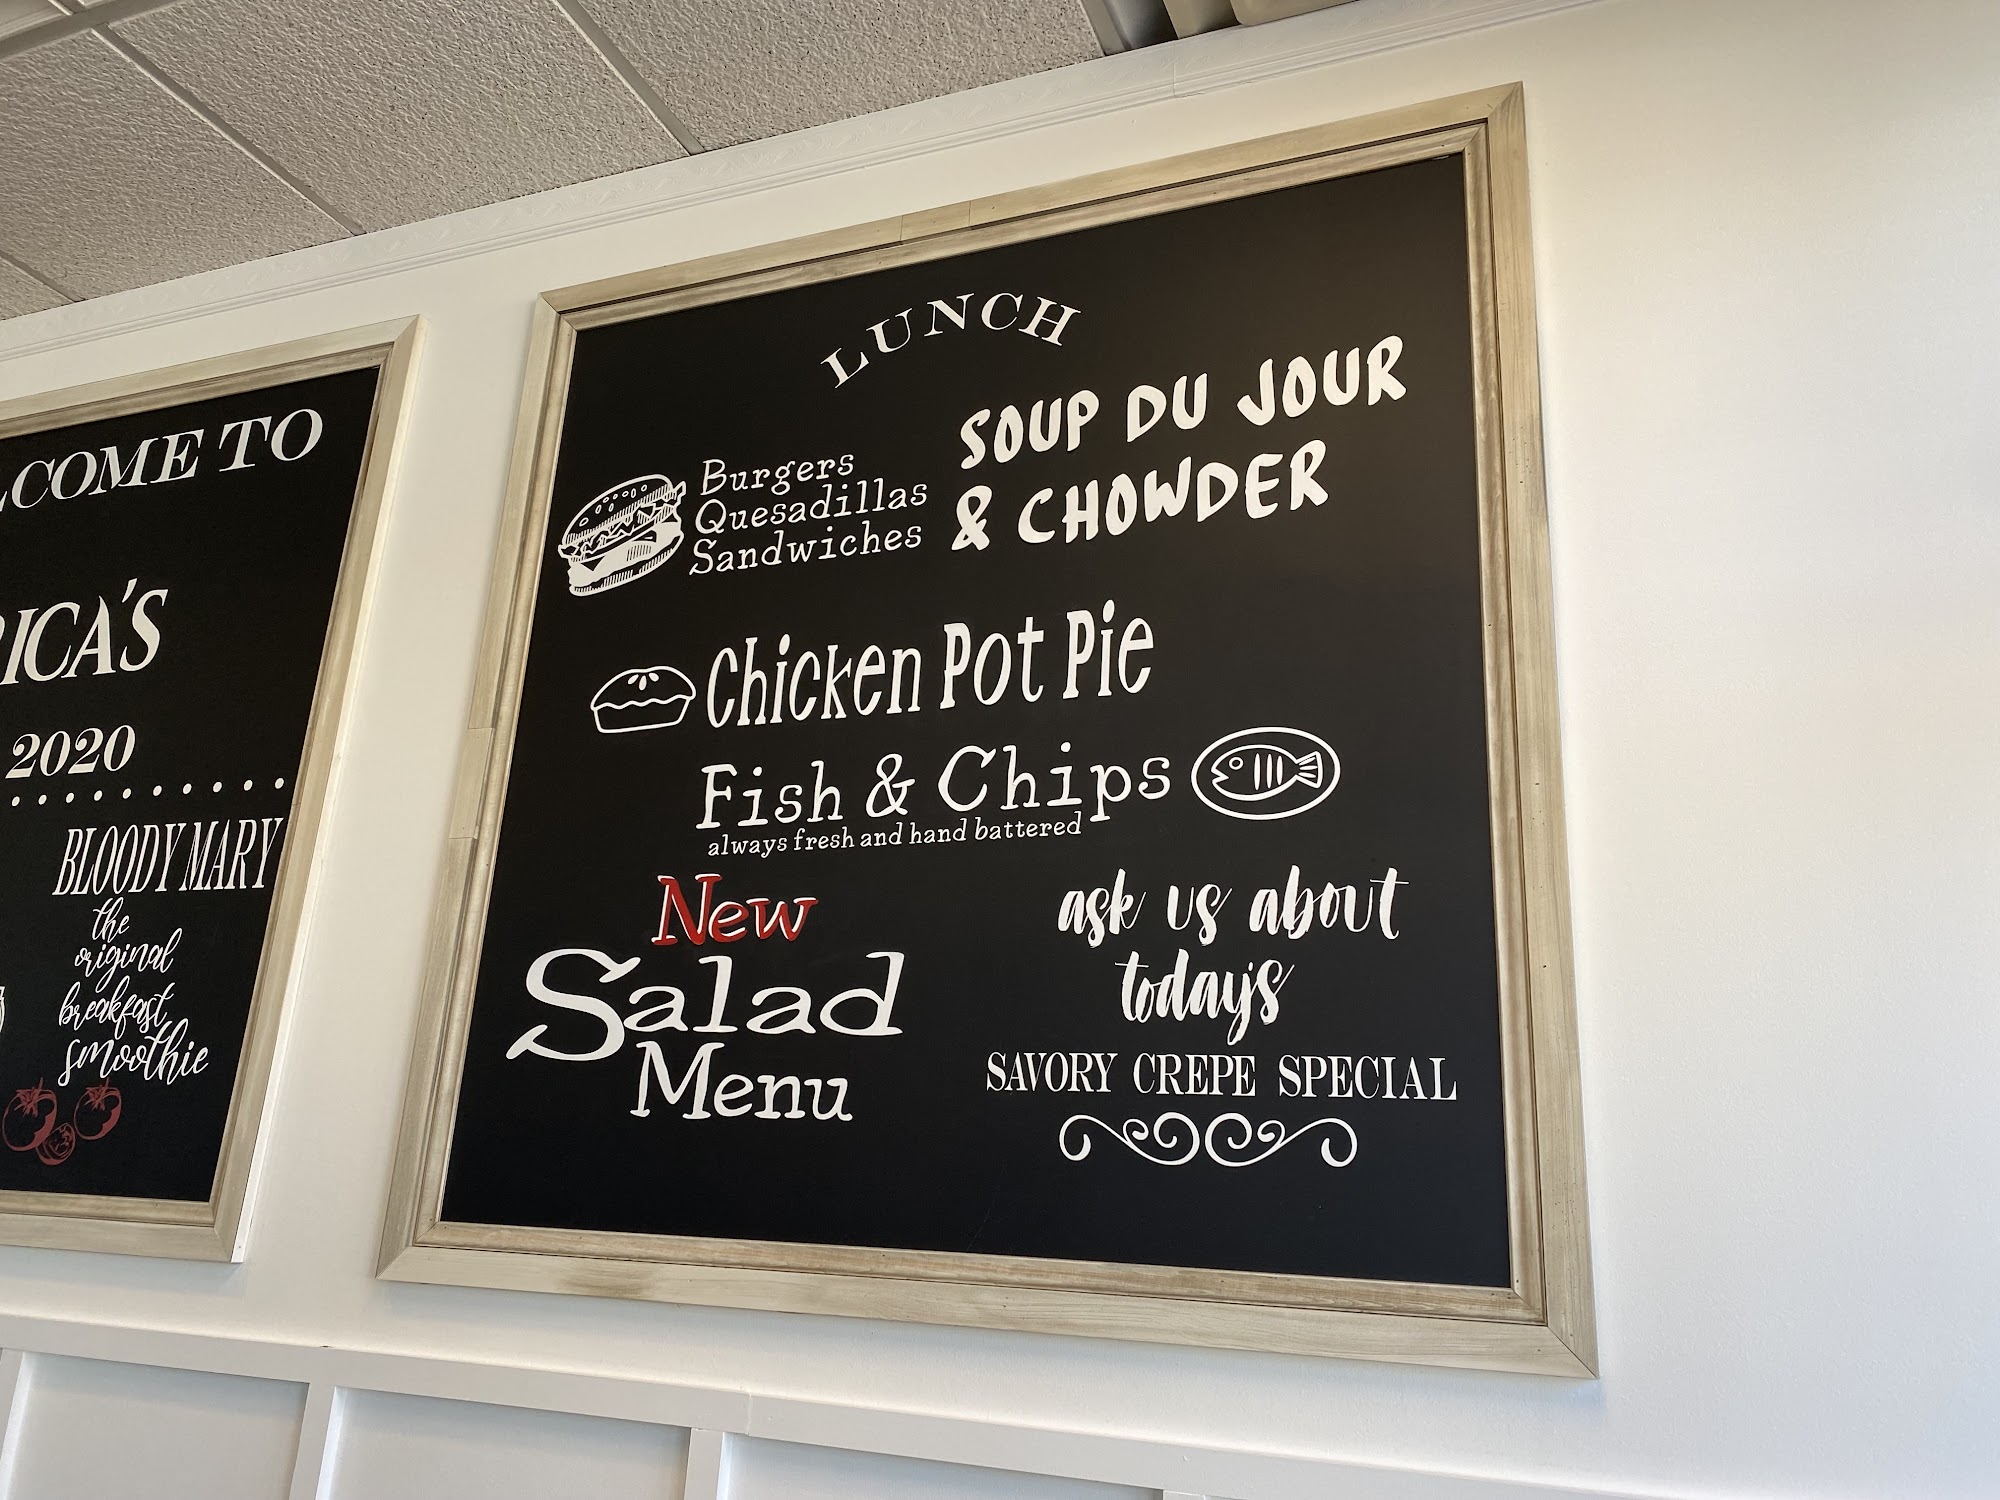 COME TO
ICA'S
2020
BLOODY MARY
the
original
breakfast
smoothie
LUNCH
Burgers
Quesadillas
Sandwiches
SOUP DU JOUR
& CHOWDER
Chicken Pot Pie
Fish & Chips
always fresh and hand battered
New
Salad
Menu
ask us about
today's
SAVORY CREPE SPECIAL